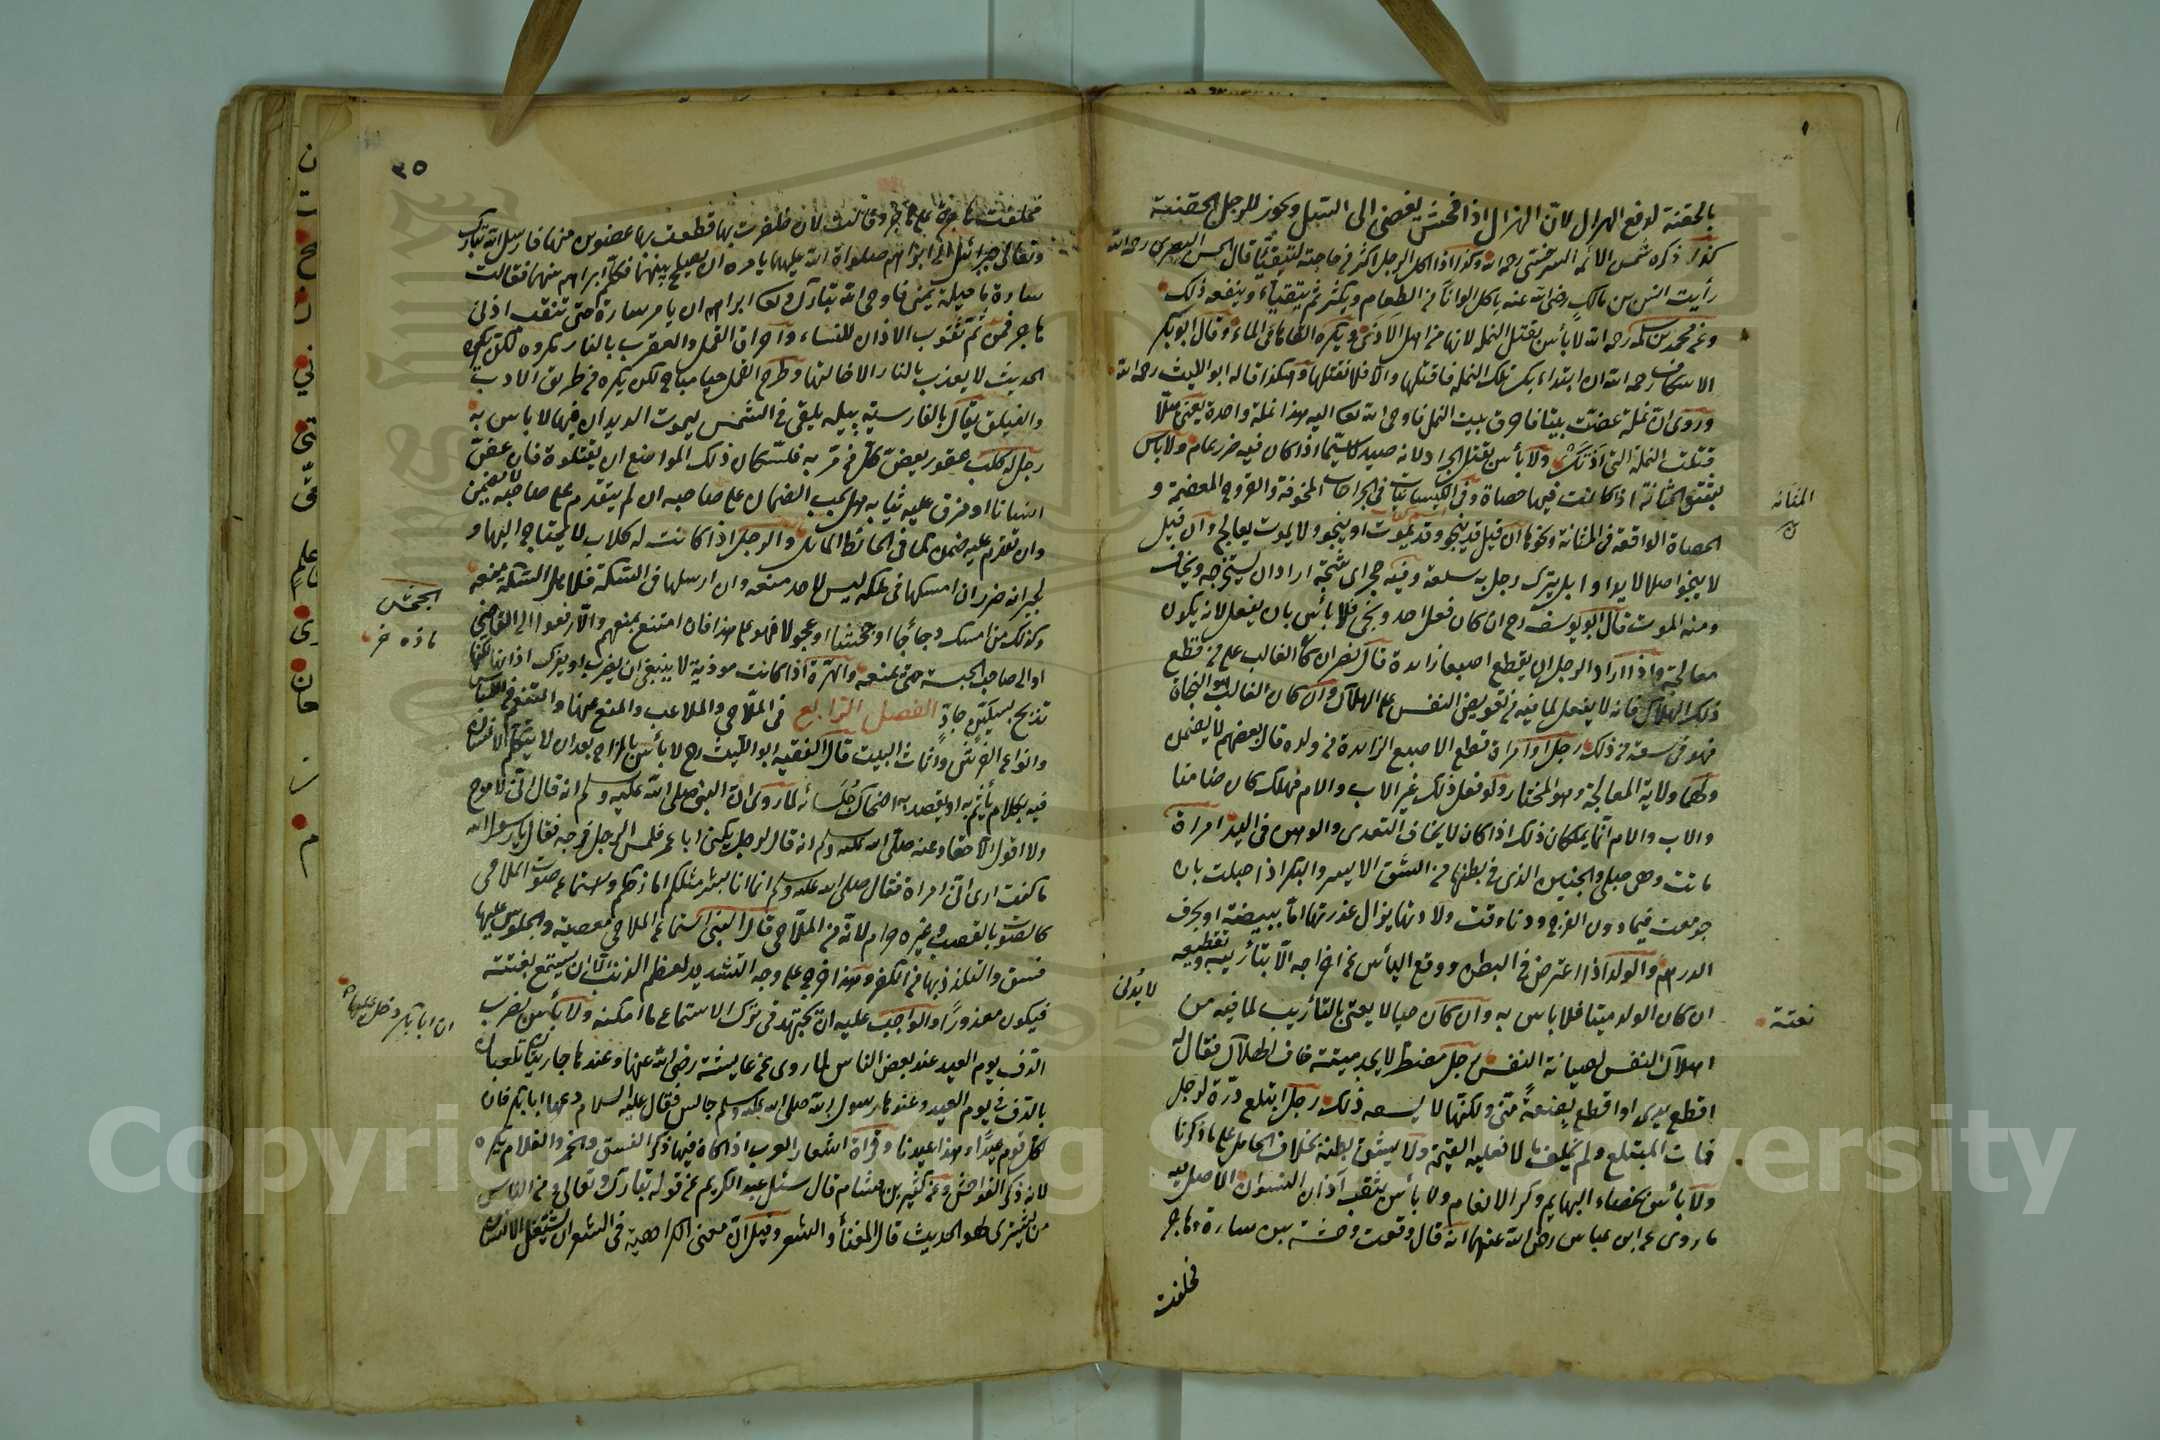 بالحقنة لدفع الهزال لان الهزال اذا فحش يفضى الى السبل ويجوز للرجل الحقنة
كذا ذكره شمس الائمه السرخسى رحمه الله وكذا اذا اكل الرجل اكثر من حاجته ليتقيأ قال الحسن البصرى رحمه الله
رأيت انس بن مالك رضى الله عنه ياكل الوانا من الطعام ويكثر ثم يتقيأ وينفعه ذلك
وعن محمد بن سلمه رحمه الله لا بأس بقتل النمله لانها من اهل الاذى ويكره القاها فى الماء وقال ابو بكر
الاسكاف رحمه الله ان ابتداء بك تلك النمله فاقتلها والا فلا تقتلها وهكذا قاله ابو الليث رحمه الله
وروى ان نملة عضت بيتا فاحرق بيت النمل فاوحى الله تعا اليه هذا نملة واحدة يعنى هلا
قتلت النملة التى آذتك ولا بأس بقتل الجراد لانه صيد لا سيما اذا كان فيه ضرر عام ولا باس
بشق المثانة اذا كانت فيها حصاة وفى الكيسانيات فى الجراحات المخوفة والقروح المعضمة و
الحصاة الواقعة فى المثانة ونحوها ان قيل قد ينجو وقد يموت او ينجو ولا يموت يعالج وان قيل
لا ينجو اصلا لا يداوا بل يترك رجل به سلعة وفيه حجر اى شجة اراد ان يستخرجه ويخاف
ومنه الموت قال ابو يوسف رح ان كان فعل احد ونجى فلا بأس بان يفعل لانه يكون
معالجة واذا اراد الرجل ان يقطع اصبعا زائدة قال نصر ان كان الغالب على من قطع
ذلك الهلاك فانه لا يفعل لما فيه من تعريض النفس على الهلاك وان كان الغالب هو النجاة
فهو فى سعة من ذلك رجل او امراة قطع الاصبع الزائدة من ولده قال بعضهم لا يضمن
ولهما ولاية المعالجة وهو المختار ولو فعل ذلك غير الاب والام فهلك كان ضامنا
والاب والام انما يملكان ذلك اذا كان لا يخاف التعدى والوهن فى اليد امراة
ماتت وهى حبلى والجنين الذى فى بطنها من الشق الايسر والبكر اذا حبلت بان
جومعت فيما دون الفرج ودنا وقت ولادتها يزال عذرتها اما ببيضة او بحرف
الدرهم والولد اذا اعترض فى البطن ووقع اليأس عن اخراجه الا بتأريبه وتقطيعه
ان كان الولد ميتا فلا باس به وان كان حيا لا يعنى بالتأريب لما فيه من
اهلاك النفس لصيانة النفس رجل مضطر لا يجد ميتة خاف الهلاك فقال له
اقطع يدى او اقطع بضعة منى وكلها لا يسعه ذلك رجل ابتلع درة لرجل
فمات المبتلع ولم يخلف مالا فعليه القيمة ولا يشق بطنه بخلاف الحامل على ما ذكرنا
ولا بأس بخصاء البهايم وكره الانعام ولا بأس بثقب آذان النسوان الاصل فيه
ما روى عن ابن عباس رضى الله عنهما انه قال وقعت وحشة بين سارة وهاجر
فحلفت
المثانه
نعته
لا يولى
٣٥
فحلفت سارة على هاجر وقالت لان ظفرت بها قطعت بها عضوين منها فارسل الله تبارك
وتعالى جبرائيل الى ابراهيم صلواة الله عليهما يامره ان يصلح بينهما فكلم ابراهيم منهما فقالت
سارة ما حيلة يمينى فاوحى الله تبارك وتعا ابراهيم ان يامر سارة حتى تنقب اذنى
هاجر فمن ثم ثقوب الاذان للنساء واحراق القمل والعقرب بالنار مكروه لكن يكره
الحديث لا يعذب بالنار الا خالقها وطرح القمل حيا مباح لكن يكره من طريق الادب
والفيلق يقال بالفارسية پيله يلقى فى الشمس ليموت الديدان فيها لا باس به
رجل له كلب عقور يعض كل من مر به فلسكان ذلك المواضع ان يقتلوه فان عض
انسانا او مزق عليه ثيابه هل يجب الضمان على صاحبه ان لم يتقدم على صاحبه لا يضمن
وان تقدم عليه ضمن كما فى الحائط المائل والرجل اذا كانت له كلاب لا يحتاج اليها و
لجيرانه ضرر ان امسكها فى ملكه ليس لاحد منعه وان ارسلها فى السكة فلاهل السكة منعه
وكذلك من امسك دجاجا او جحشا او عجولا فهو على هذا فان امتنع بمنعهم والا رفعوا الى القاضى
او الى صاحب الحبسة حتى يمنعه والهرة اذا كانت موذية لا ينبغى ان يضرب او يفرك اذانها لكنها
تذبح بسكين حاد الفصل الرابع فى الملاهى والملاعب والمنع عنها والتمتع من اللباس
وانواع الفرش واثاث البيت قال الفقيه ابو الليث رح لا بأس بالمزاح بعد ان لا يتكلم الانسان
فيه بكلام يأثم به او يقصد به اضحاك جلسائه لما روى ان النبى صلى الله عليه وسلم انه قال انى لامزح
ولا اقول الا حقا وعنه صلى الله عليه وسلم انه قال لرجل يكنى ابا عمر فلمس الرجل فرجه فقال يا رسول الله
ما كنت ارى انى امراة فقال صلى الله عليه وسلم انما انا بشر مثلكم امازحكم واستماع صوت الملاهى
كالضرب بالقصب وغيره حرام لانه من الملاهى قال النبى استماع الملاهى معصية والجلوس عليها
فسق والتلذذ بها من الكفر وهذا خرج على وجه التشديد لعظم الذنب الا ان يستمع بغتة
فيكون معذورا والواجب عليه ان يجتهد فى ترك الاستماع ما امكنه ولا بأس بضرب
الدف يوم العيد عند بعض الناس لما روى عن عايشة رضى الله عنها وعندها جاريتان تلعبان
بالدف فى يوم العيد وعندها رسول الله صلى الله عليه وسلم جالس فقال عليه السلام دعها ابا بكر فان
لكل قوم عيدا وهذا عيدنا وقراة اشعار العرب اذا كان فيها ذكر الفسق والخمر والغلام يكره
لانه ذكر الفواحش وعن كثير بن هشام قال سئل عبد الكريم عن قوله تبارك وتعالى ومن الناس
من يشترى لهو الحديث قال الغناء والشعر وقيل ان معنى الكراهية فى الشعر ان يشتغل الانسان
الجحش
ان ابا بكر دخل عليها
Copyright © King Saud University